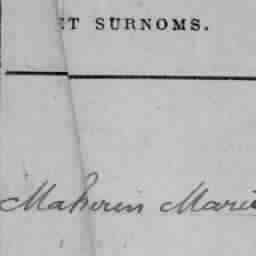 ET SURNOMS.
Maheren Marie